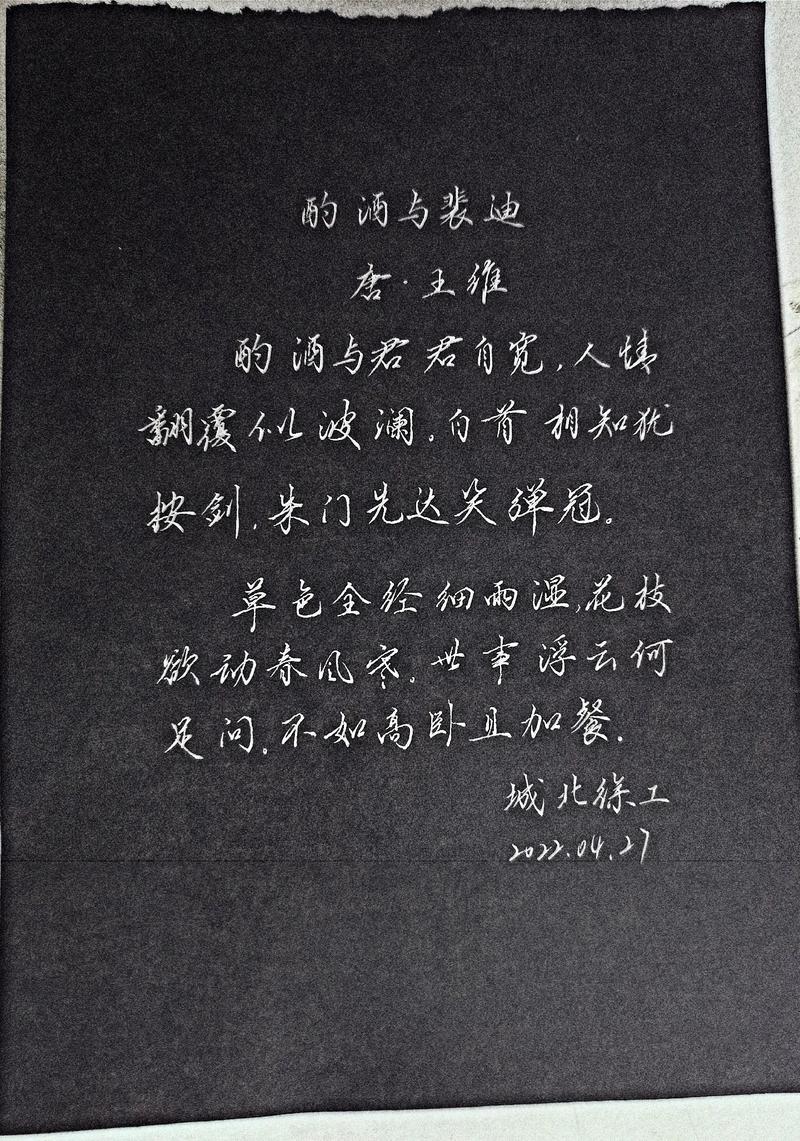 酌酒与裴迪
唐·王维
酌酒与君君自宽,人情
翻覆似波澜。白首相知犹
按剑,朱门先达笑弹冠。
草色全经细雨湿,花枝
欲动春风寒。世事浮云何
足问,不如高卧且加餐.
城北徐工
2022.04.27